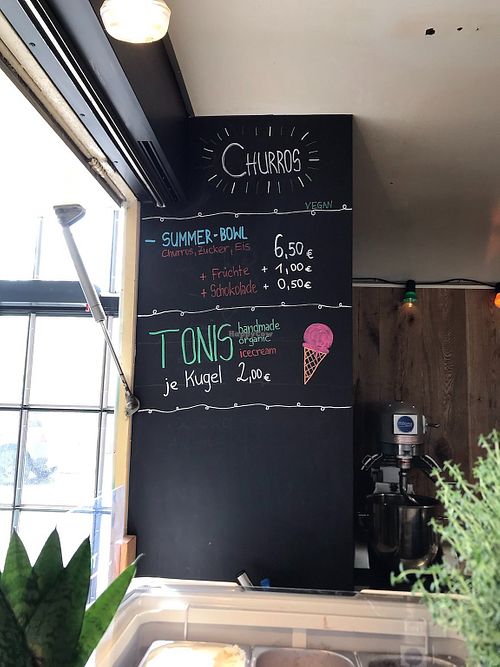 CHURROS
VEGAN
- SUMMER-BOWL 6,50€
Churros, Zucker, Eis
+ Früchte + 1,00€
+ Schokolade + 0,50€
TONIS handmade
organic
icecream
je Kugel 2,00€